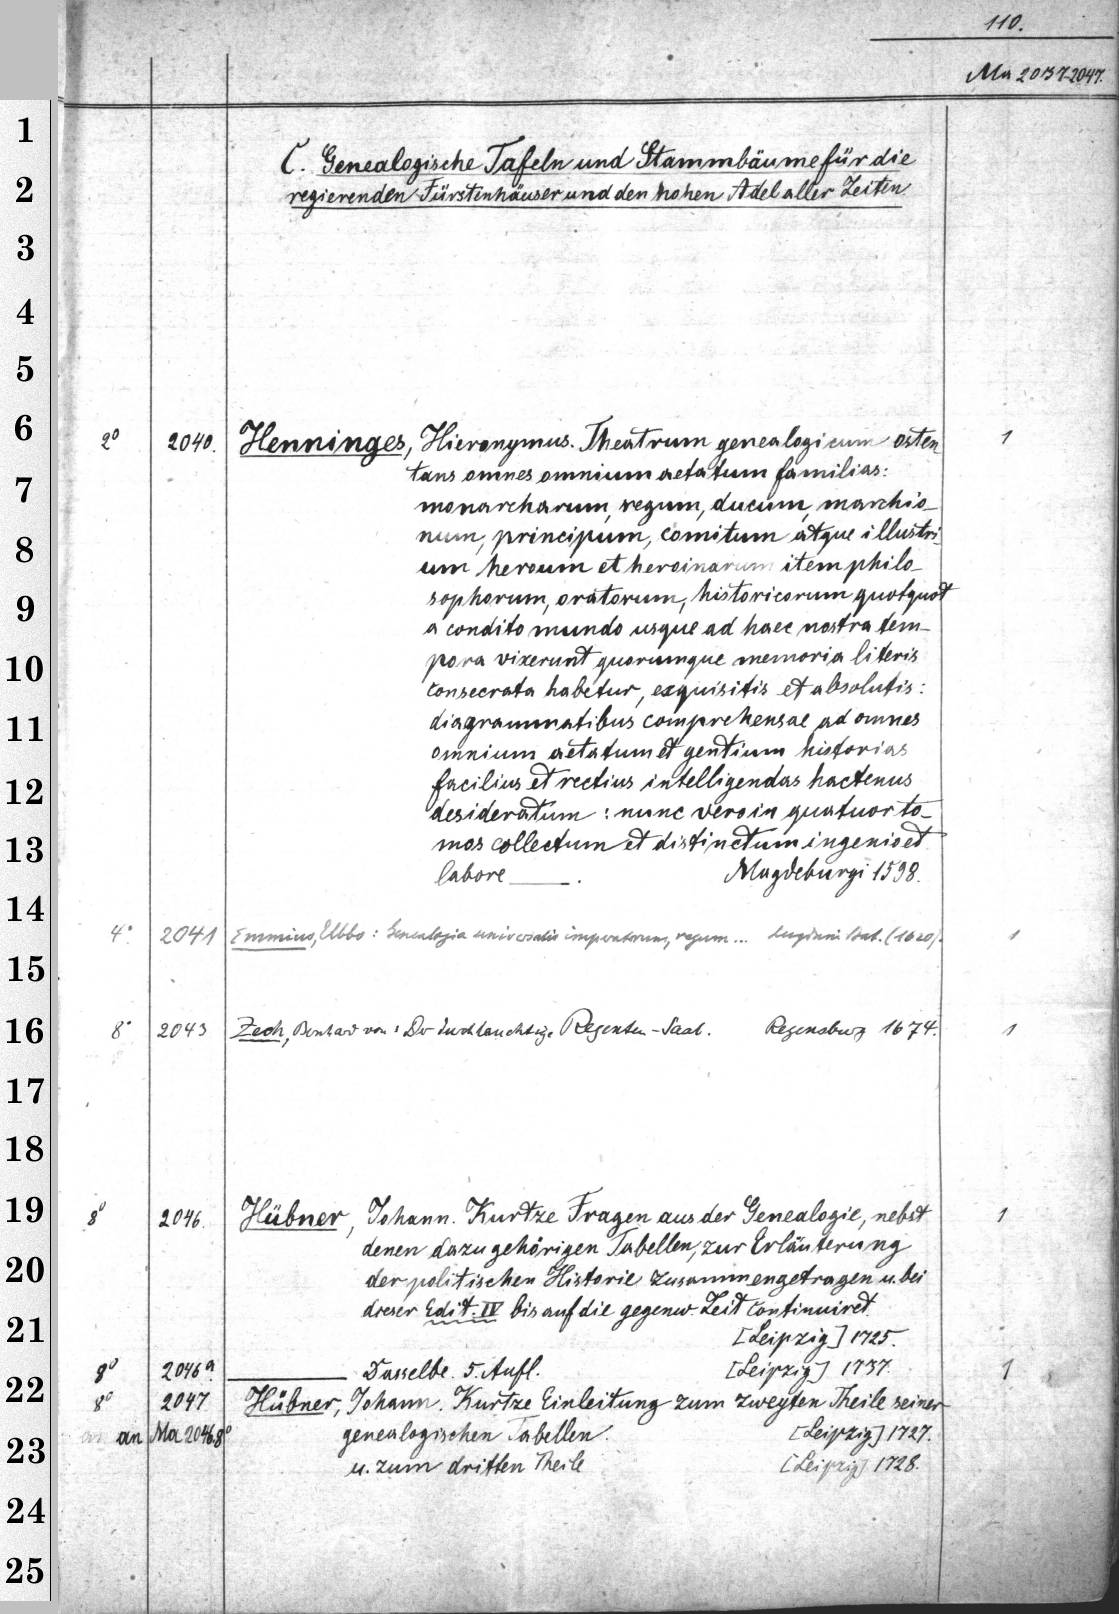 110.
Ma 2037-2047.
1
C. Genealogische Tafeln und Stammbäume für die
2
regierenden Fürstenhäuser und den hohen Adel aller Zeiten
3
4
5
6
2° 2040. Henninges, Hieronymus. Theatrum genealogicum osten 1
tans omnes omnium aetatum familias:
7
monarcharum, regum, ducum, marchio-
num, principum, comitum atque illustri-
8
um heroum et heroinarum item philo-
9
sophorum, oratorum, historicorum quotquot
a condito mundo usque ad haec nostra tem-
10
pora vixerunt quorumque memoria literis
consecrata habetur, exquisitis et absolutis:
11
diagrammatibus comprehensae ad omnes
omnium aetatum et gentium historias
12
facilius et rectius intelligendas hactenus
desideratum : nunc vero in quatuor to-
13
mos collectum et distinctum ingenio et
labore ____. Magdeburgi 1598.
14
4° 2041 Emmius, Ubbo: Genealogia universalis imperatorum, regum... Lugduni Bat. (1620). 1
15
16
8° 2043 Zech, Bernhard von: Der durchlauchtige Regenten-Saal. Regensburg 1674. 1
17
18
19
8° 2046. Hübner, Johann. Kurtze Fragen aus der Genealogie, nebst 1
denen dazu gehörigen Tabellen, zur Erläuterung
20
der politischen Historie zusammengetragen u. bei
dieser Edit. IV bis auf die gegenw. Zeit continuiret
21
[Leipzig] 1725.
8° 2046a. ____ Dasselbe. 5. Aufl. [Leipzig] 1737. 1
22
8° 2047 Hübner, Johann. Kurtze Einleitung zum zweyten Theile seiner
an Ma 2046 8° genealogischen Tabellen. [Leipzig] 1727.
23
u. zum dritten Theile [Leipzig] 1728.
24
25